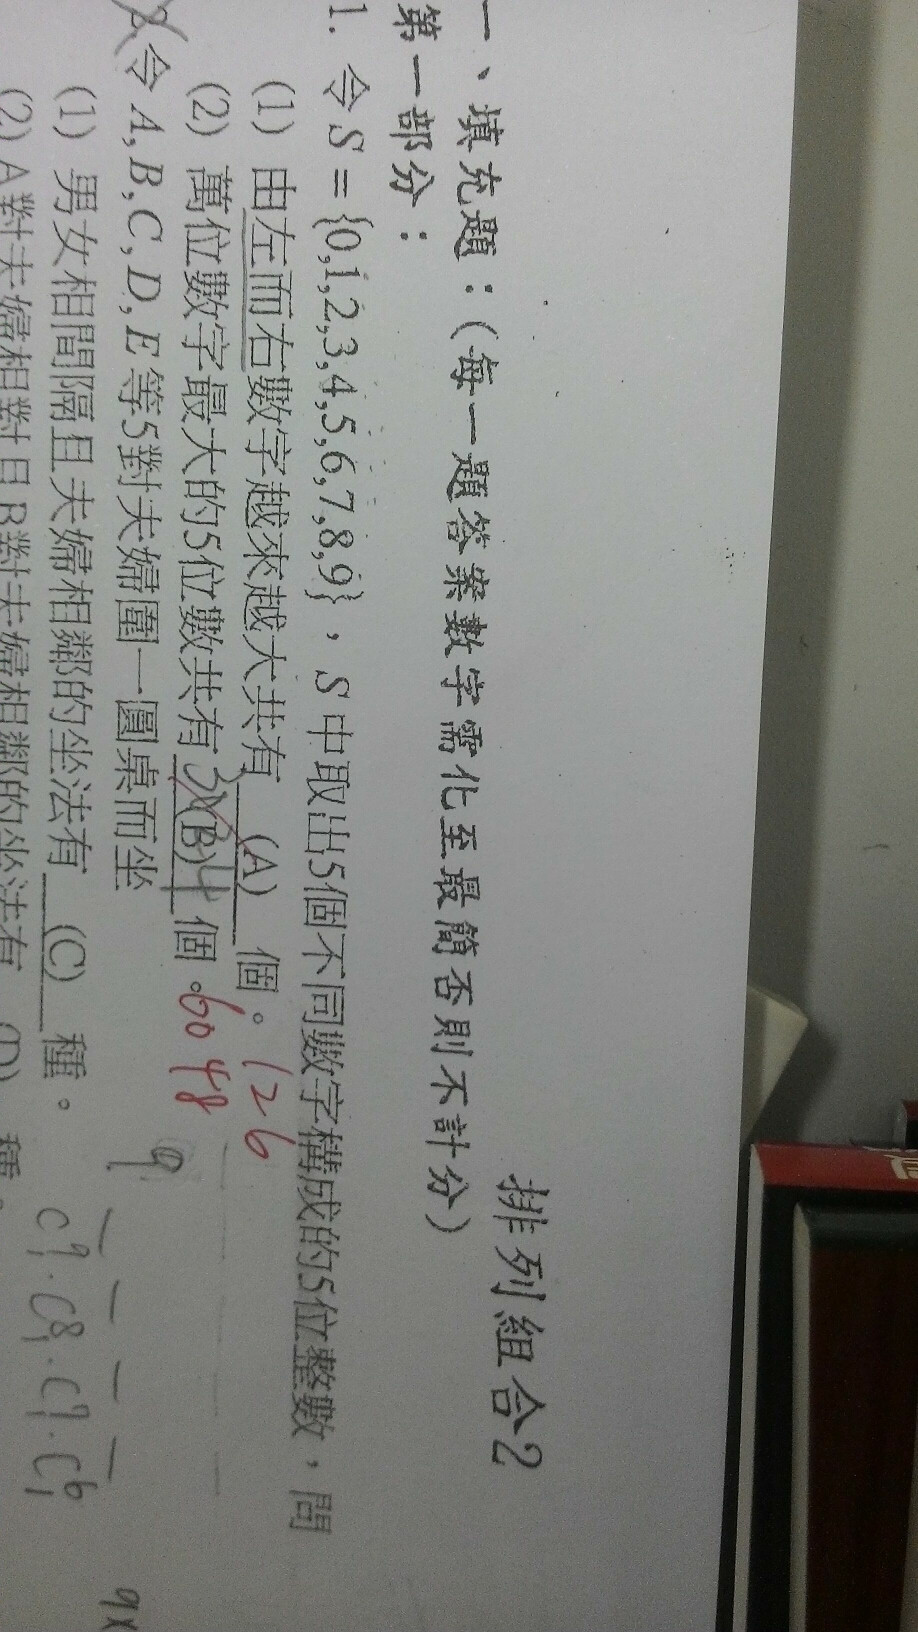 排列組合2
一、填充題：(每一題答案數字需化至最簡否則不計分)
第一部分：
1. 令 S = {0,1,2,3,4,5,6,7,8,9}，S 中取出5個不同數字構成的5位整數，問
(1) 由左而右數字越來越大共有 (A) 個。126
(2) 萬位數字最大的5位數共有 (B) 個。6048
2. 令 A, B, C, D, E 等5對夫婦圍一圓桌而坐
(1) 男女相間隔且夫婦相鄰的坐法有 (C) 種。
(2) A對夫婦相對且B對夫婦相鄰的坐法有 (D) 種。
9
C⁹₁·C⁸₁·C⁷₁·C⁶₁